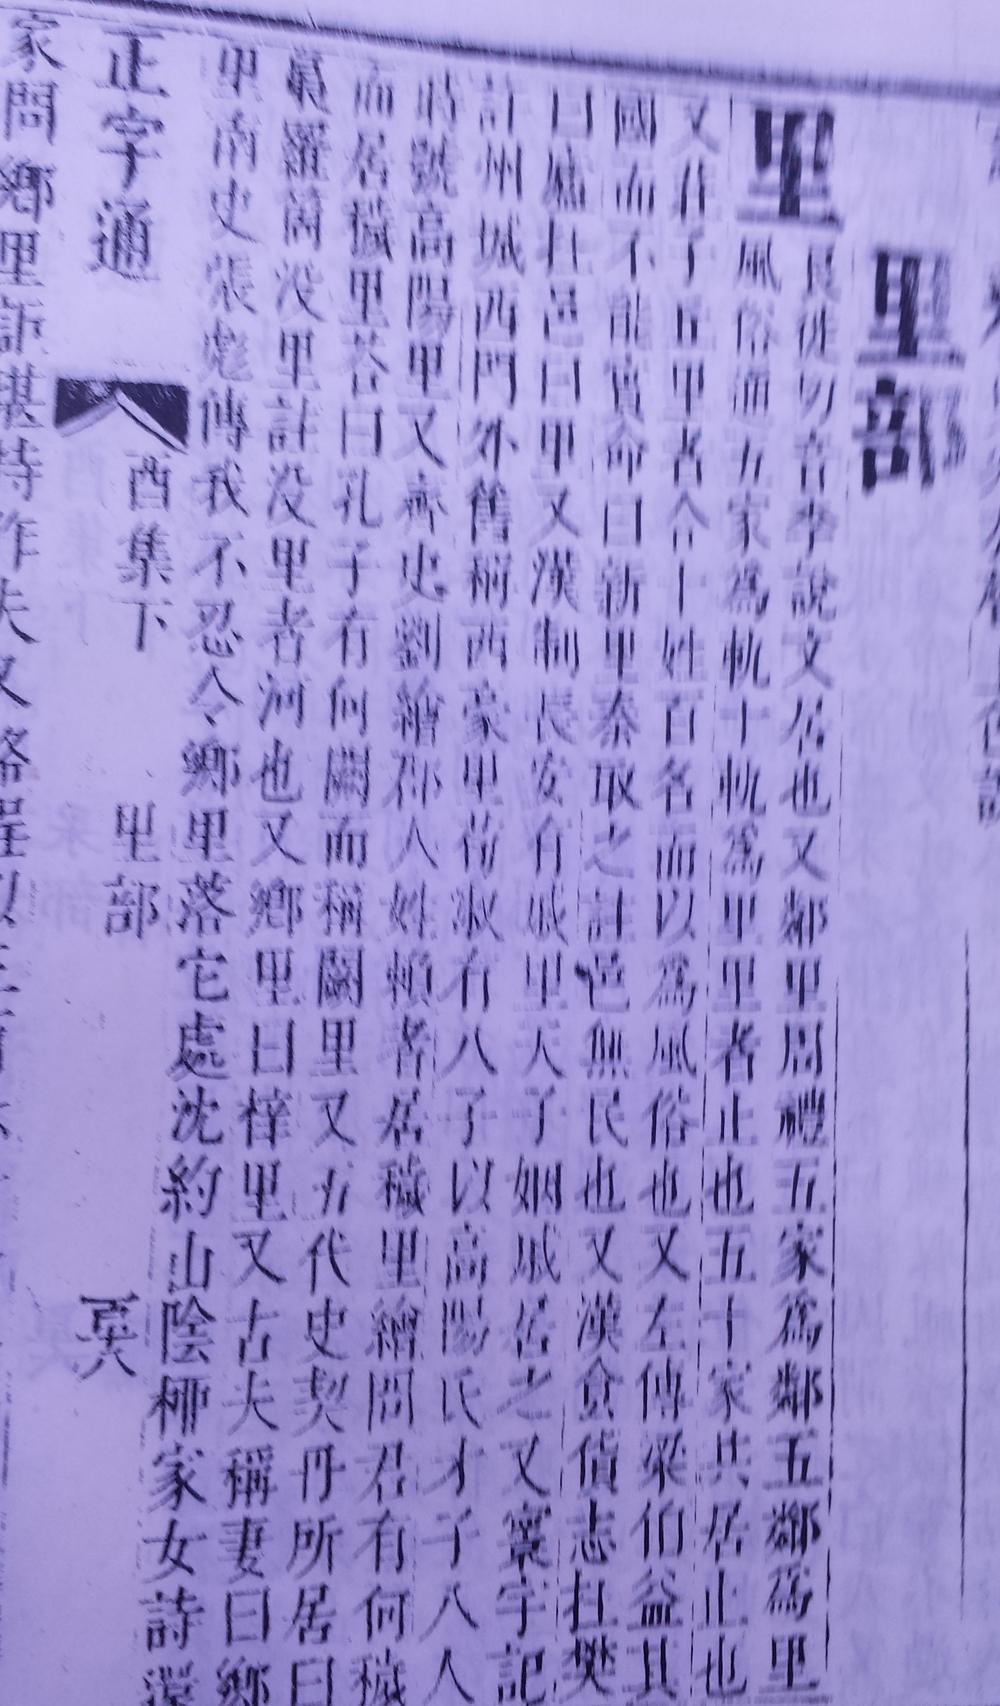 里部
里
良徙切音李說文居也又鄰里周禮五家為鄰五鄰為里
風俗通五家為軌十軌為里里者止也五十家共居止也
又莊子丘里者合十姓百名而以為風俗也又左傳梁伯益其
國而不能實命曰新里秦取之註邑無民也又漢食貨志在樊
曰廬在邑曰里又漢制長安有戚里天子姻戚居之又寰宇記
許州城西門外舊稱西豪里荀淑有八子以高陽氏才子八人
時號高陽里又齊史劉繪郡人姓賴者居穢里繪問君有何穢
而居穢里荅曰孔子有何闕而稱闕里又五代史契丹所居曰
羅箇没里註没里者河也又鄉里曰梓里又古夫稱妻曰鄉
里南史張彪傳我不忍令鄉里落它處沈約山陰柳家女詩還
正字通
酉集下
里部
家問鄉里詎堪特作夫又